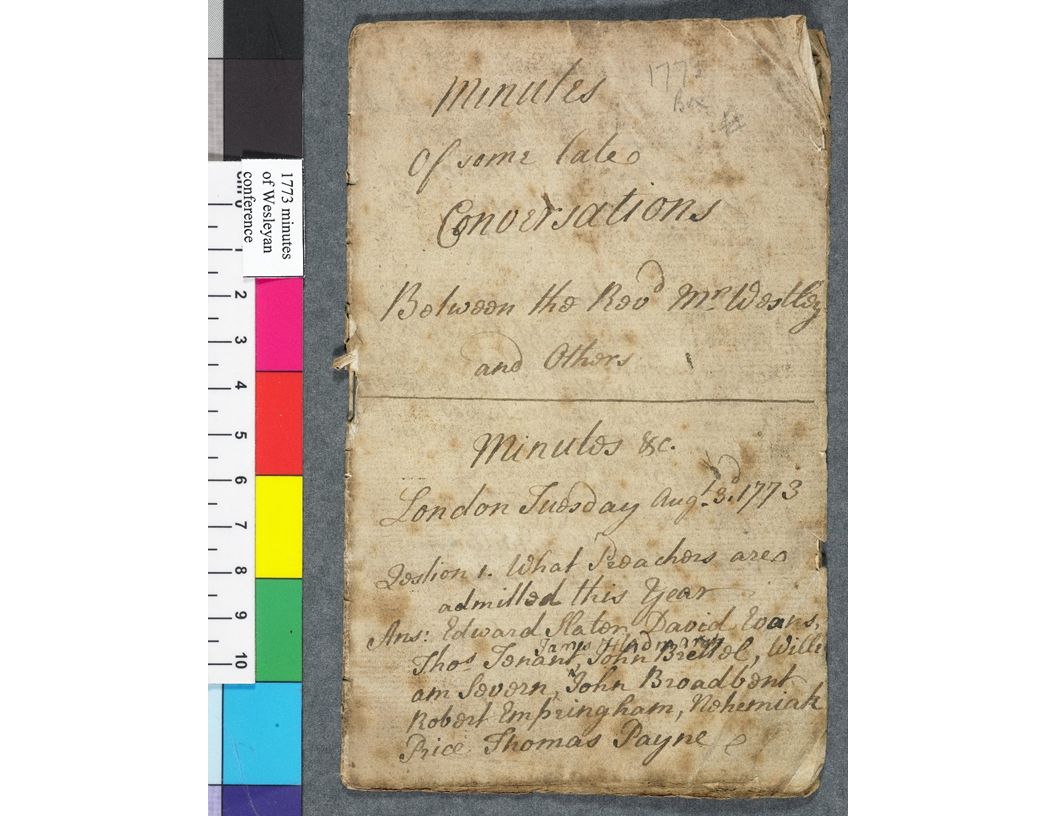 1773 minutes
of Wesleyan
conference
cm 0
1
2
3
4
5
6
7
8
9
10
1773
Box
Minutes
Of some late
Conversations
Between the Revd Mr Westley
and Others
Minutes &c.
London Tuesday Augt. 3d. 1773
Qestion 1. What Preachers are
admitted this Year
Ans: Edward Slater, David Evans,
James Hindmarsh
Thos Tenant, John Brettel, Willi
am Severn, John Broadbent
Robert Empringham, Nehemiah
Price Thomas Payne